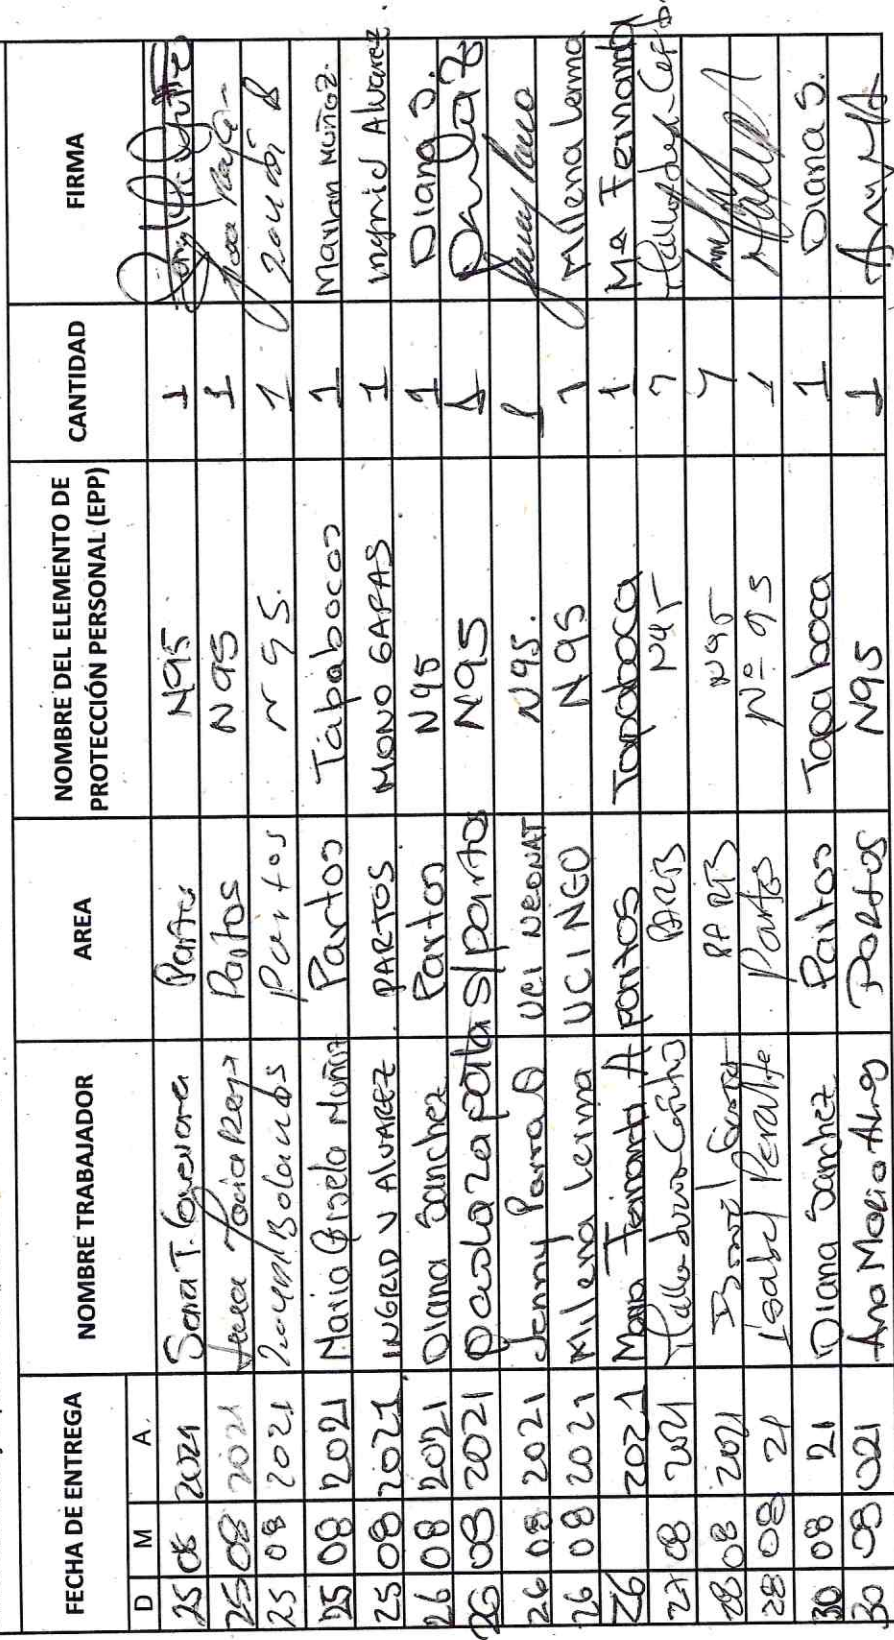 FECHA DE ENTREGA NOMBRE TRABAJADOR AREA NOMBRE DEL ELEMENTO DE PROTECCIÓN PERSONAL (EPP) CANTIDAD FIRMA
D M A.
25 08 2021 Sara T. Guevara Partos N95 1
25 08 2021 Partos N95 1
25 08 2021 Bolaños partos N95. 1
25 08 2021 Maria Gisela Muñoz Partos Tapabocas 1 Marian Muñoz.
25 08 2021 INGRID V ALVAREZ PARTOS MONO GAFAS 1 Ingrid Alvarez.
26 08 2021 Diana Sanchez Partos N95 1 Diana S.
26 08 2021 Paola Zapata S/partos N95 1
26 08 2021 Jenny Parra UCI NEONAT N95. 1
26 08 2021 Milena Lerma UCI NEO N95 1 Milena Lerma
26 2021 Maria Fernanda A partos Tapaboca 1 Ma Fernanda
27 08 2021 N95 1
28 08 2021 N95 1
28 08 21 Isabel Partos Nº 95 1
30 08 21 Diana Sanchez Partos Tapaboca 1 Diana S.
30 08 021 Ana Maria Partos N95 1